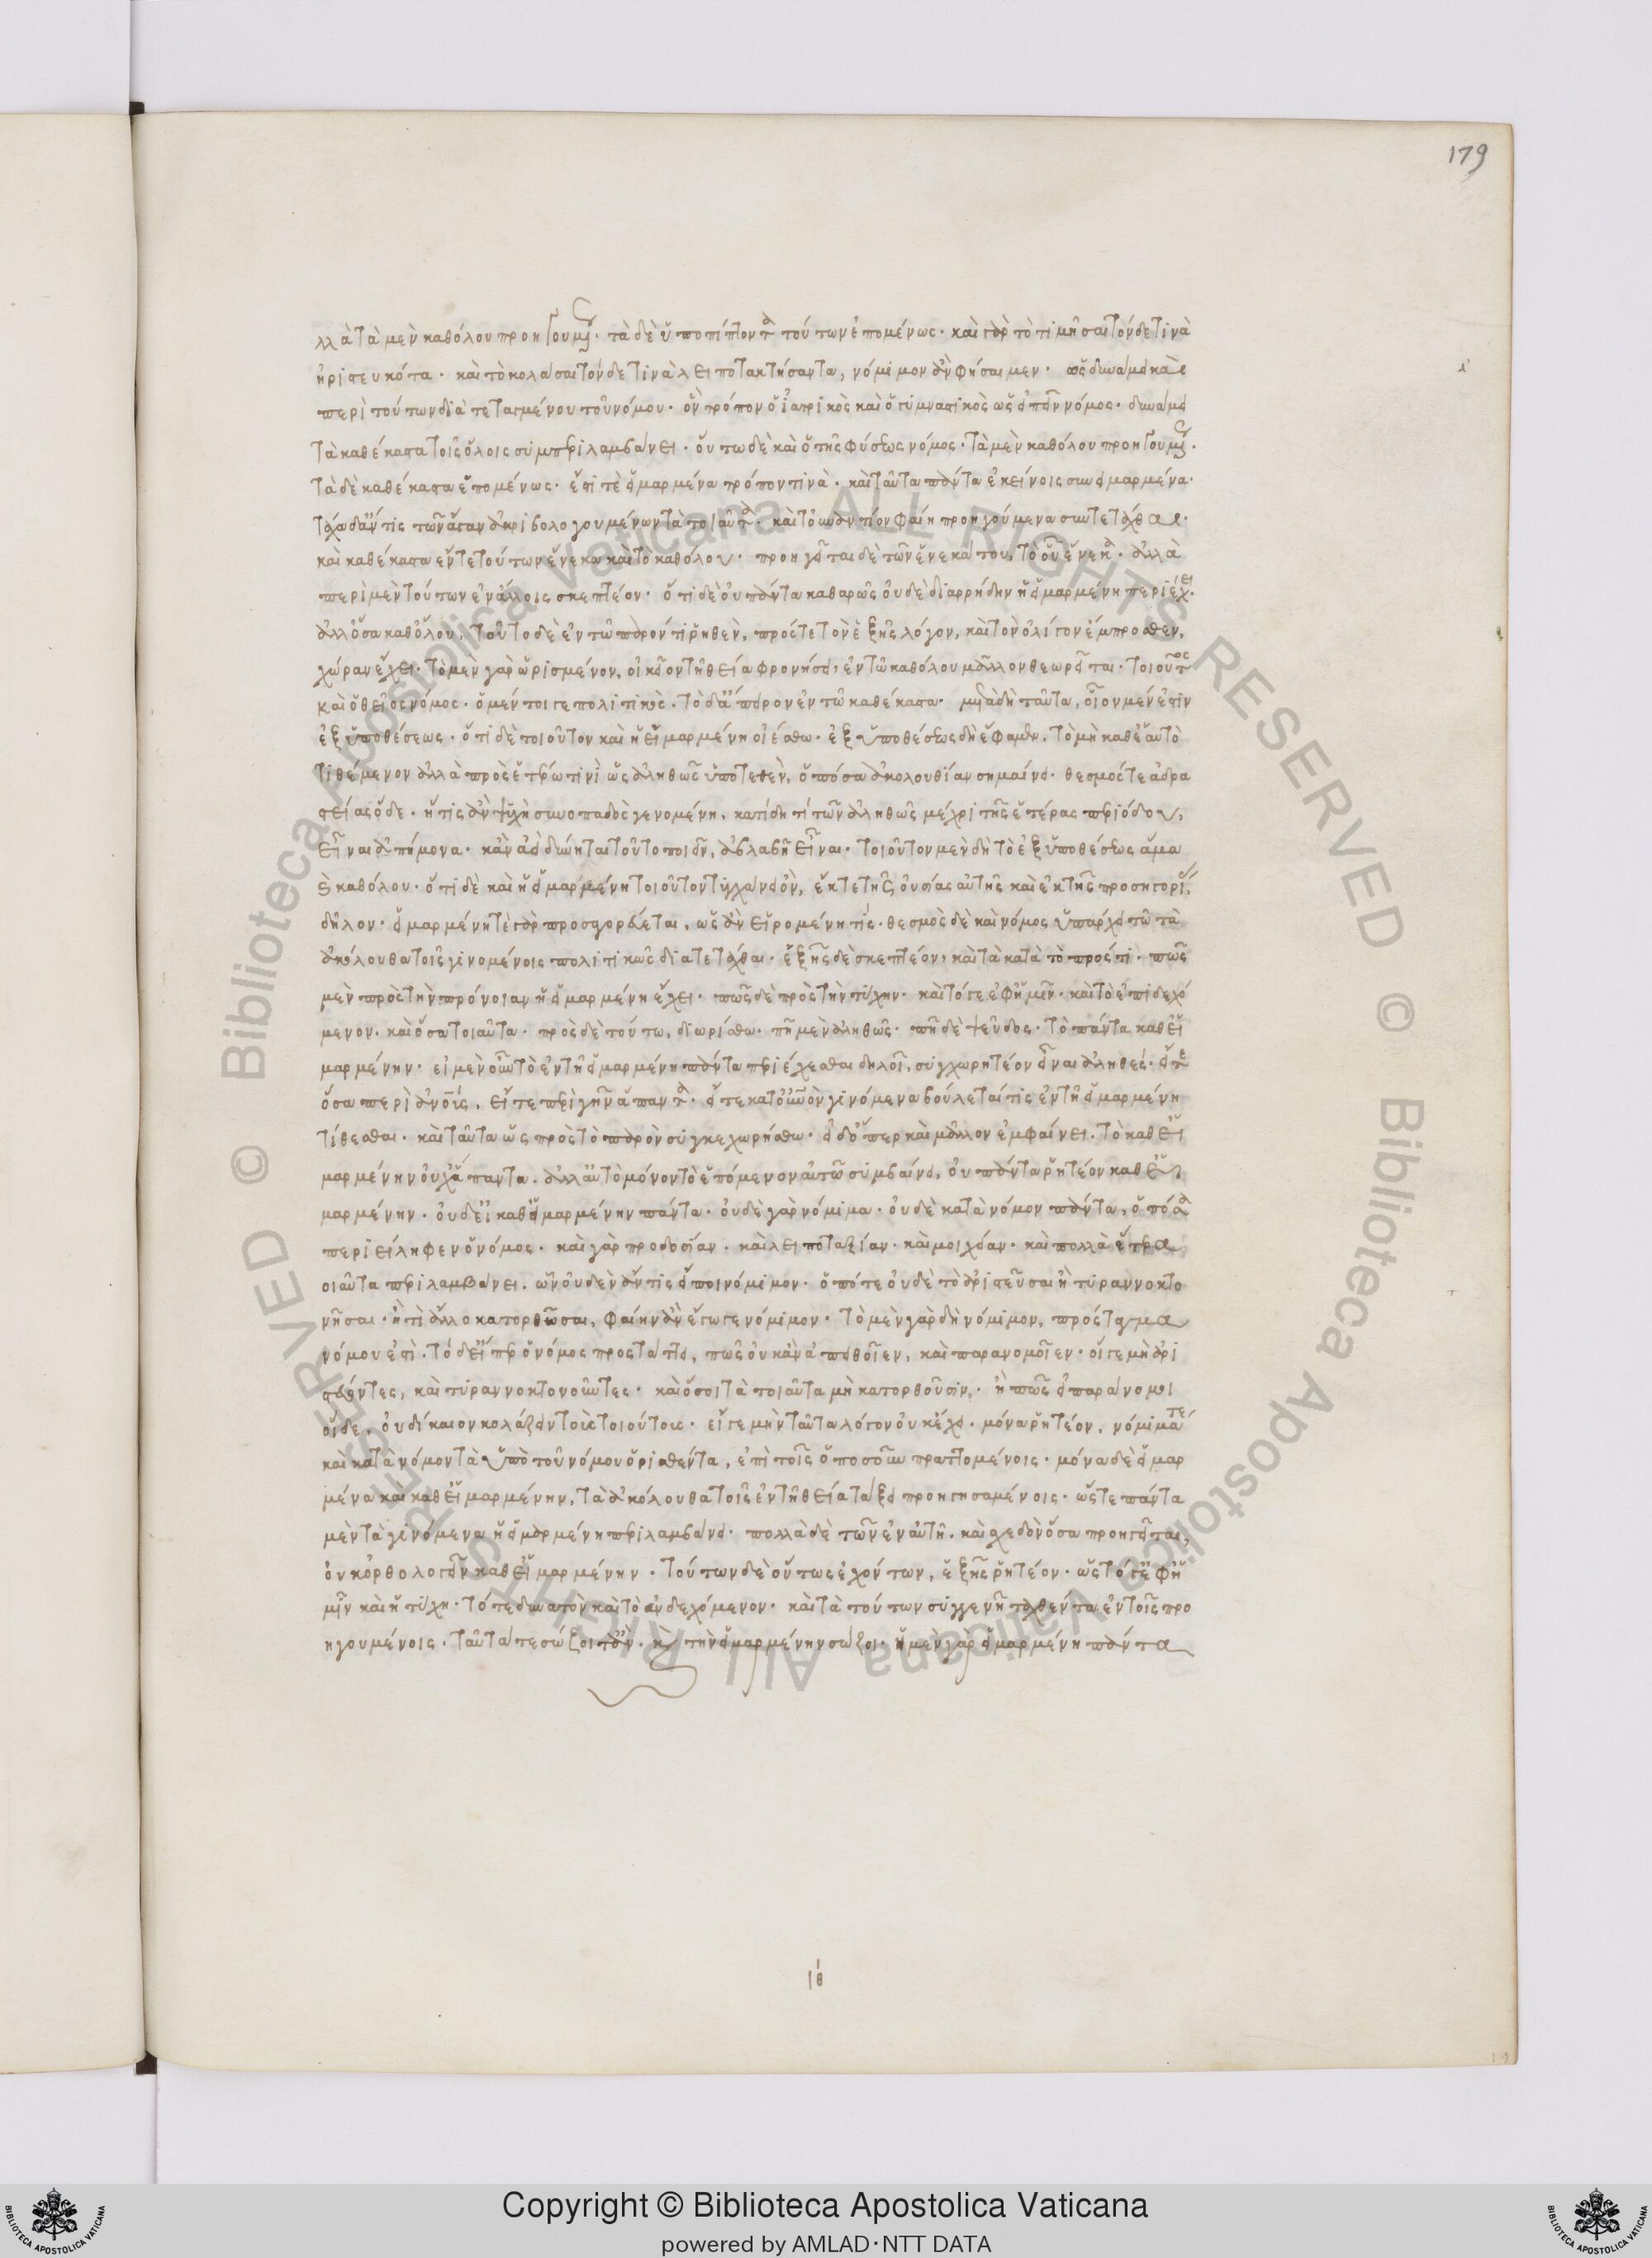 179
λλὰ τὰ μὲν καθόλου προηγουμένως· τὰ δὲ ὑποπίπτοντα τούτων ἑπομένως· καὶ γὰρ τὸ τιμῆσαι τόνδε τινὰ
ἠριστευκότα· καὶ τὸ κολάσαι τόνδε τινὰ λειποτακτήσαντα, νόμιμον ἂν φήσαιμεν· ὡς δυνάμει καὶ
περὶ τούτων διατεταγμένου τοῦ νόμου· ὃν τρόπον ὁ ἰατρικὸς καὶ ὁ γυμναστικὸς ὡς εἰπεῖν νόμος· δυνάμει
τὰ καθέκαστα τοῖς ὅλοις συμπεριλαμβάνει· οὕτω δὲ καὶ ὁ τῆς φύσεως νόμος· τὰ μὲν καθόλου προηγουμένως·
τὰ δὲ καθέκαστα ἑπομένως· ἔστι τὲ εἱμαρμένα τρόπον τινὰ· καὶ ταῦτα πάντα ἐκείνοις συνειμαρμένα·
τάχα δ' ἄν τις τῶν ἄγαν ἀκριβολογουμένων τὰ τοιαῦτα· καὶ τοὐναντίον φαίη προηγούμενα συντετάχθαι·
καὶ καθέκαστα ἕν τε τούτων ἕνεκα καὶ τὸ καθόλου· προηγεῖται δὲ τῶν ἕνεκά του, τὸ οὗ ἕνεκα· ἀλλὰ
περὶ μὲν τούτων ἐν ἄλλοις σκεπτέον· ὅτι δὲ οὐ πάντα καθαρῶς οὐδὲ διαρρήδην ἡ εἱμαρμένη περιέχει·
ἀλλ' ὅσα καθόλου, τοῦτο δὲ ἐν τῶ παρόντι ῥηθὲν, πρός τε τὸν ἑξῆς λόγον, καὶ τὸν ὀλίγον ἔμπροσθεν,
χώραν ἔχει· τὸ μὲν γὰρ ὡρισμένον, οἰκεῖον τῆ θεία φρονήσει, ἐν τῶ καθόλου μᾶλλον θεωρεῖται· τοιοῦτος
καὶ ὁ θεῖος νόμος· ὁ μέντοι γε πολιτικὸς. τὸ δ' ἄπειρον ἐν τῶ καθέκαστα· μετὰ δὴ ταῦτα, οἷον μέν ἐστιν
ἐξ ὑποθέσεως· ὅτι δὲ τοιοῦτον καὶ ἡ εἱμαρμένη οἰέσθω· ἐξ ὑποθέσεως δὴ ἔφαμεν, τὸ μὴ καθ' ἑαυτὸ
τιθέμενον ἀλλὰ πρὸς ἑτέρω τινὶ ὡς ἀληθῶς ὑποτεθὲν, ὁπόσα ἀκολουθίαν σημαίνει· θεσμός τε ἀδρα
στείας ὅδε· ἥτις ἂν ψυχὴ συνοπαδὸς γενομένη, κατίδη τί τῶν ἀληθῶς μέχρι τῆς ἑτέρας περιόδου,
εἶναι ἀπήμονα· κἂν ἀεὶ δύνηται τοῦτο ποιεῖν, ἀβλαβῆ εἶναι· τοιοῦτον μὲν δὴ τὸ ἐξ ὑποθέσεως ἅμα
καὶ καθόλου· ὅτι δὲ καὶ ἡ εἱμαρμένη τοιοῦτον τυγχάνει ὂν, ἔκ τε τῆς οὐσίας αὐτῆς καὶ ἐκ τῆς προσηγορίας,
δῆλον· εἱμαρμένη τὲ γὰρ προσαγορεύεται, ὡς ἂν εἰρομένη τίς· θεσμὸς δὲ καὶ νόμος ὑπάρχει τῶ τὰ
ἀκόλουθα τοῖς γινομένοις πολιτικῶς διατετάχθαι· ἑξῆς δὲ σκεπτέον, καὶ τὰ κατὰ τὸ πρός τι· πῶς
μὲν πρὸς τὴν πρόνοιαν ἡ εἱμαρμένη ἔχει· πῶς δὲ πρὸς τὴν τύχην· καὶ τό γε ἐφ' ἡμῖν· καὶ τὸ ἐπιδεχό
μενον. καὶ ὅσα τοιαῦτα· πρὸς δὲ τούτω, διωρίσθω· πῆ μὲν ἀληθῶς· πῆ δὲ ψεῦδος· τὸ πάντα καθ' εἱ
μαρμένην· εἰ μὲν οὖν τὸ ἐν τῆ εἱμαρμένη πάντα περιέχεσθαι δηλοῖ, συγχωρητέον εἶναι ἀληθές· εἴτε
ὅσα περὶ ἀνθρώποις, εἴτε περὶ γῆν ἅπαντα· εἴτε κατ' οὐρανὸν γινόμενα βούλεταί τις ἐν τῆ εἱμαρμένη
τίθεσθαι· καὶ ταῦτα ὡς πρὸς τὸ παρὸν συγκεχωρήσθω· εἰ δ' ὅπερ καὶ μᾶλλον ἐμφαίνει. τὸ καθ' εἱ
μαρμένην οὐχ ἅπαντα. ἀλλ' αὐτὸ μόνον τὸ ἑπόμενον αὐτῶ συμβαίνει, οὐ πάντα ῥητέον καθ' εἱ
μαρμένην· οὐδ' εἰ καθ' εἱμαρμένην πάντα· οὐδὲ γὰρ νόμιμα· οὐδὲ κατὰ νόμον πάντα, ὁπόσα
περιείληφεν ὁ νόμος· καὶ γὰρ προδοσίαν· καὶ λειποταξίαν· καὶ μοιχείαν· καὶ πολλὰ ἕτερα
οιαῦτα περιλαμβάνει. ὧν οὐδὲν ἄν τις εἴποι νόμιμον· ὁπότε οὐδὲ τὸ ἀριστεῦσαι ἢ τυραννοκτο
νῆσαι· ἤ τι ἄλλο κατορθῶσαι, φαίην ἂν ἔγωγε νόμιμον· τὸ μὲν γὰρ δὴ νόμιμον, πρόσταγμα
νόμου ἐστὶ. τὸ δ' εἴπερ ὁ νόμος προστάττει, πῶς οὐκ ἂν ἀπειθοῖεν, καὶ παρανομοῖεν· οἵ γε μὴ ἀρι
στεύοντες, καὶ τυραννοκτονοῦντες· καὶ ὅσοι τὰ τοιαῦτα μὴ κατορθοῦσιν,· ἢ πῶς εἰ παράνομοι
οἵδε, οὐ δίκαιον κολάζειν τοὺς τοιούτους· εἴ γε μὴν ταῦτα λόγον οὐκ ἔχει· μόνα ῥητέον, νόμιμά τε
καὶ κατὰ νόμον τὰ ὑπὸ τοῦ νόμου ὁρισθέντα, ἐπὶ τοῖς ὁποσοῦν πραττομένοις· μόνα δὲ εἱμαρ
μένα καὶ καθ' εἱμαρμένην, τὰ ἀκόλουθα τοῖς ἐν τῆ θεία τάξει προηγησαμένοις· ὥστε πάντα
μὲν τὰ γινόμενα ἡ εἱμαρμένη περιλαμβάνει· πολλὰ δὲ τῶν ἐν αὐτῆ. καὶ σχεδὸν ὅσα προηγεῖται,
οὐκ ὀρθὸν λέγειν καθ' εἱμαρμένην· τούτων δὲ οὕτως ἐχόντων, ἑξῆς ῥητέον· ὡς τό γε ἐφ' ἡ
μῖν καὶ ἡ τύχη· τό τε δυνατὸν καὶ τὸ ἐνδεχόμενον· καὶ τὰ τούτων συγγενῆ ταχθέντα ἐν τοῖς προ
ηγουμένοις. ταῦτά τε σώζοιτο ἂν. καὶ τὴν εἱμαρμένην σώζοι· ἡ μὲν γὰρ εἱμαρμένη πάντα
ιθ
Copyright © Biblioteca Apostolica Vaticana
powered by AMLAD·NTT DATA